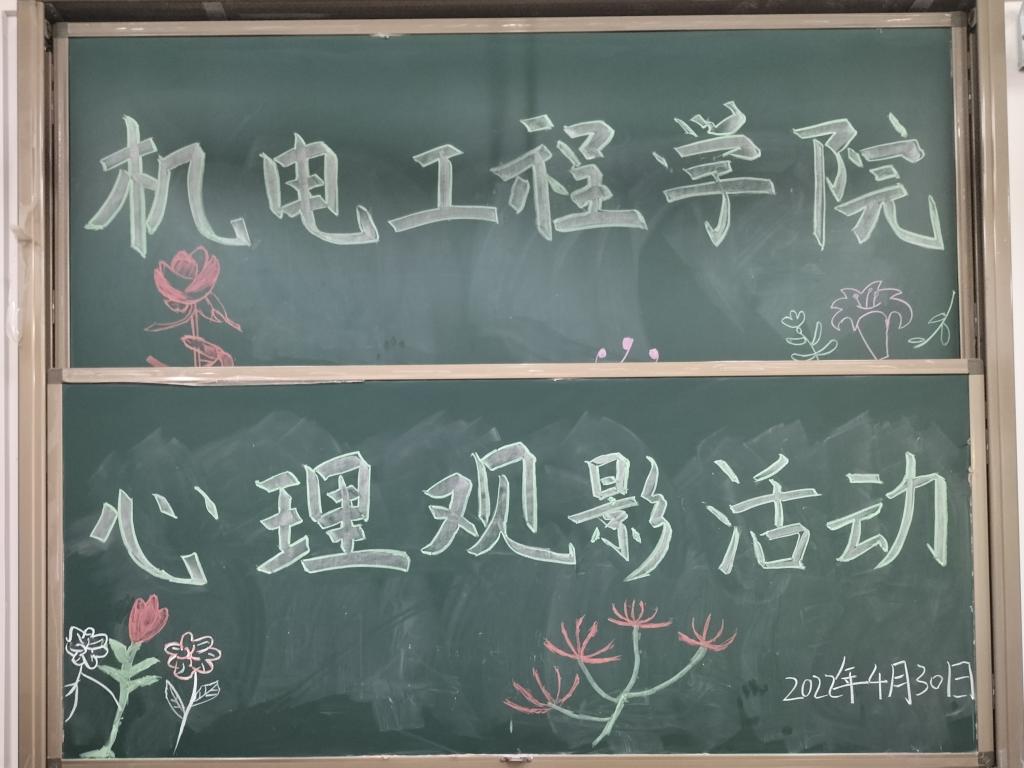 机电工程学院
心理观影活动
2022年4月30日